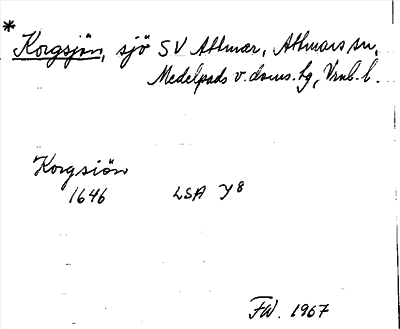 * Korgsjön, sjö SV Attmar, Attmars sn,
Medelpads v. doms. hg, Vrnl. l.
Korgsiön
1646 LSA Y8
FW. 1967